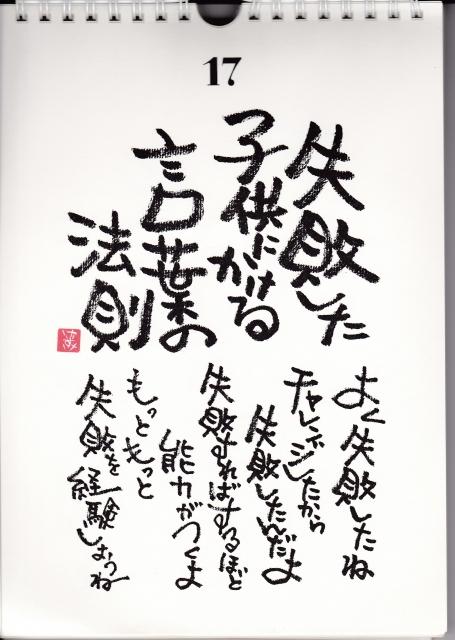 17
失敗した
子供にかける
言葉の
法則
よく失敗したね
チャレンジしたから
失敗したんだよ
失敗すればするほど
能力がつくよ
もっともっと
失敗を経験しようね